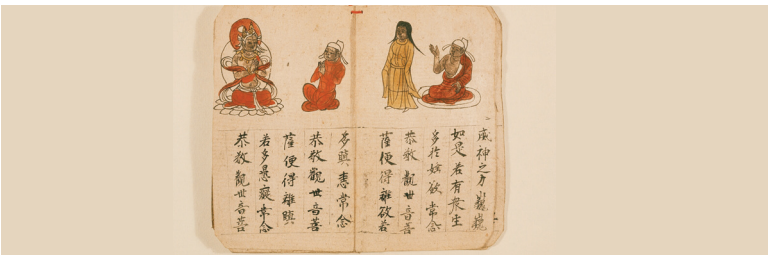 威神之力巍巍
如是若有衆生
多於婬欲常念
恭敬觀世音菩
薩便得離欲若
多瞋恚常念
恭敬觀世音菩
薩便得離瞋
若多愚癡常念
恭敬觀世音菩